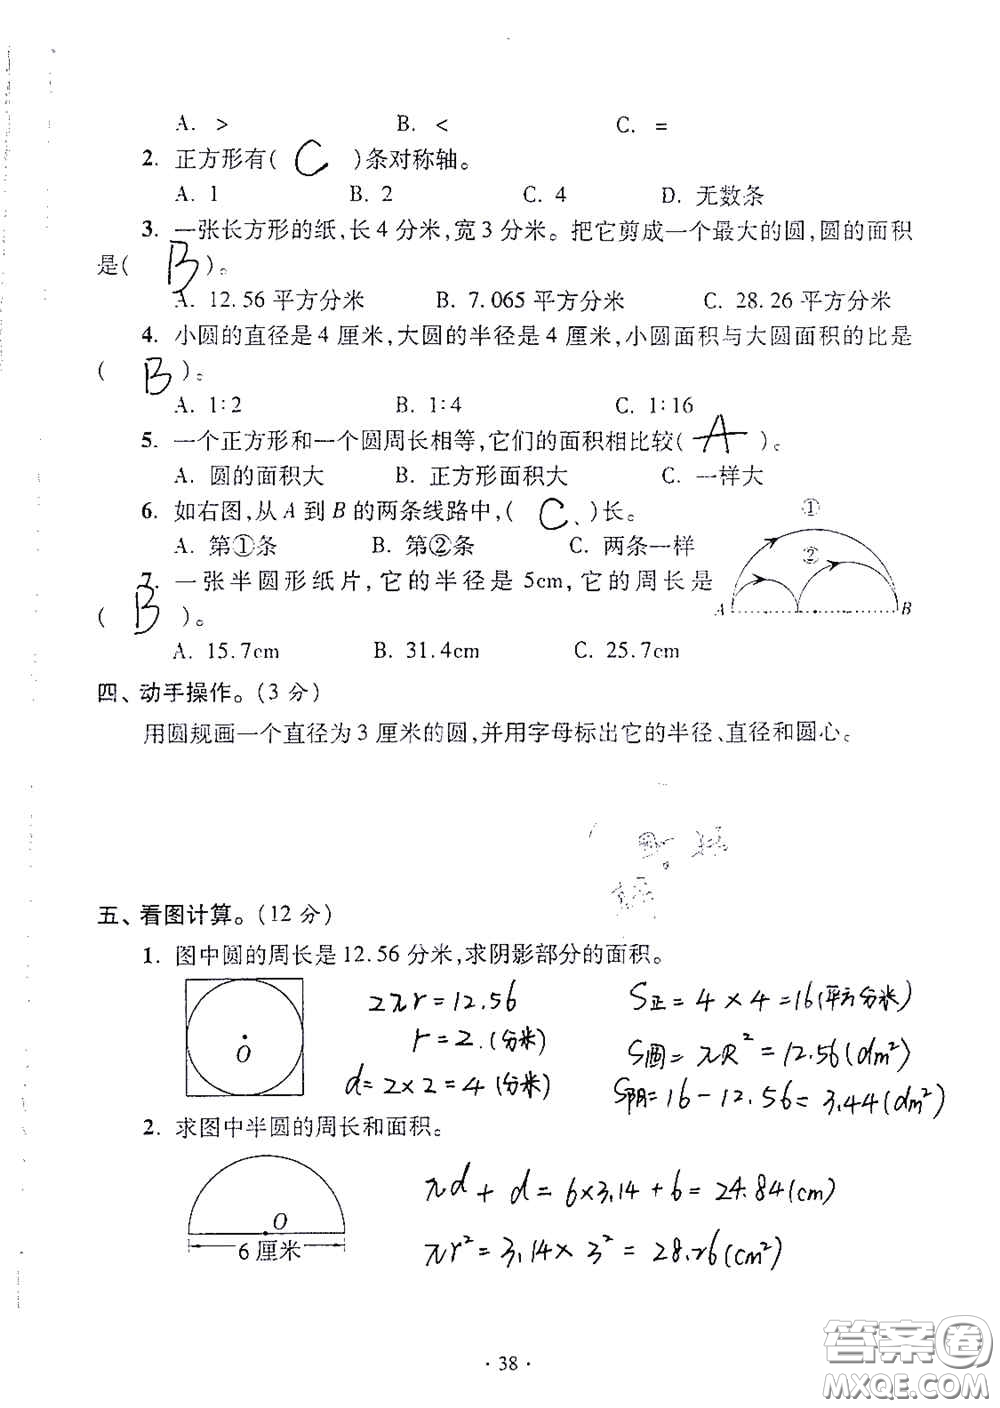 A. >  B. <  C. =
2. 正方形有( C )条对称轴。
A. 1  B. 2  C. 4  D. 无数条
3. 一张长方形的纸,长4分米,宽3分米。把它剪成一个最大的圆,圆的面积
是( B )。
A. 12.56平方分米  B. 7.065平方分米  C. 28.26平方分米
4. 小圆的直径是4厘米,大圆的半径是4厘米,小圆面积与大圆面积的比是
( B )。
A. 1:2  B. 1:4  C. 1:16
5. 一个正方形和一个圆周长相等,它们的面积相比较( A )。
A. 圆的面积大  B. 正方形面积大  C. 一样大
6. 如右图,从A到B的两条线路中,( C )长。
A. 第①条  B. 第②条  C. 两条一样
①
②
A  B
7. 一张半圆形纸片,它的半径是5cm,它的周长是
( B )。
A. 15.7cm  B. 31.4cm  C. 25.7cm
四、动手操作。(3分)
用圆规画一个直径为3厘米的圆,并用字母标出它的半径、直径和圆心。
五、看图计算。(12分)
1. 图中圆的周长是12.56分米,求阴影部分的面积。
O
2πr=12.56
r=2.(分米)
d=2×2=4(分米)
S正=4×4=16(平方分米)
S圆=πR²=12.56(dm²)
S阴=16-12.56=3.44(dm²)
2. 求图中半圆的周长和面积。
O
6厘米
πd+d=6×3.14+6=24.84(cm)
πr²=3.14×3²=28.26(cm²)
·38·
答案圈
MXQE.COM